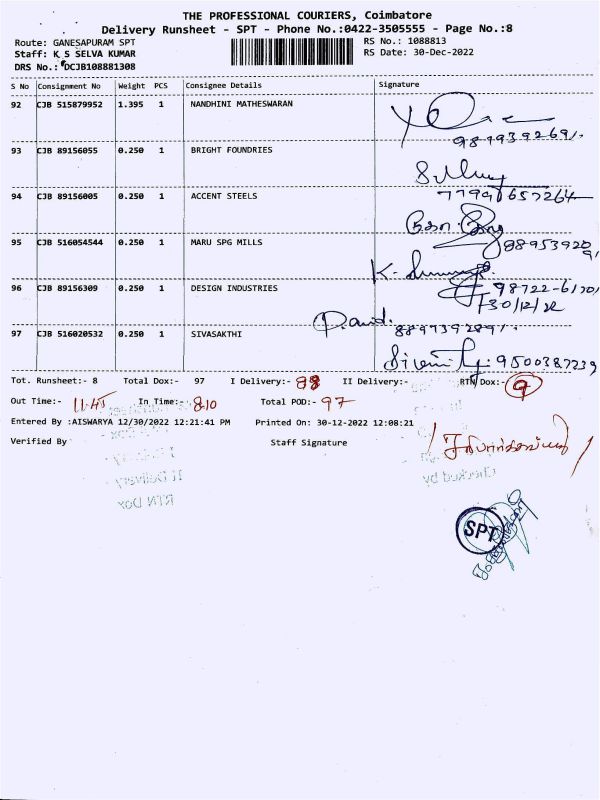 THE PROFESSIONAL COURIERS, Coimbatore
Delivery Runsheet - SPT - Phone No.:0422-3505555 - Page No.:8
Route: GANESAPURAM SPT RS No.: 1088813
Staff: K S SELVA KUMAR RS Date: 30-Dec-2022
DRS No.: DCJB108881308
S No Consignment No Weight PCS Consignee Details Signature
92 CJB 515879952 1.395 1 NANDHINI MATHESWARAN
93 CJB 89156055 0.250 1 BRIGHT FOUNDRIES
94 CJB 89156005 0.250 1 ACCENT STEELS
95 CJB 516054544 0.250 1 MARU SPG MILLS
96 CJB 89156309 0.250 1 DESIGN INDUSTRIES
30/12/22
97 CJB 516020532 0.250 1 SIVASAKTHI
9500387239
Tot. Runsheet:- 8 Total Dox:- 97 I Delivery:- 88 II Delivery:- RTN Dox:- 9
Out Time:- 11.45 In Time:- 8.10 Total POD:- 97
Entered By :AISWARYA 12/30/2022 12:21:41 PM Printed On: 30-12-2022 12:08:21
Verified By Staff Signature
II Delivery
Checked by
RTN Dox
SPT